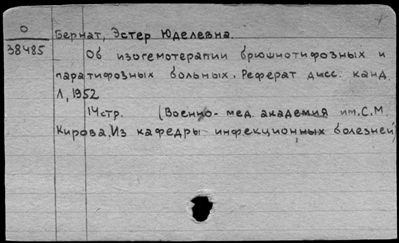 О Бернат, Эстер Юделевна.
38485
Об изогемотерапии брюшнотифозных и
паратифозных больных. Реферат дисс. канд.
Л, 1952
14 стр. (Военно-мед. академия им. С.М.
Кирова, Из кафедры инфекционных болезней)